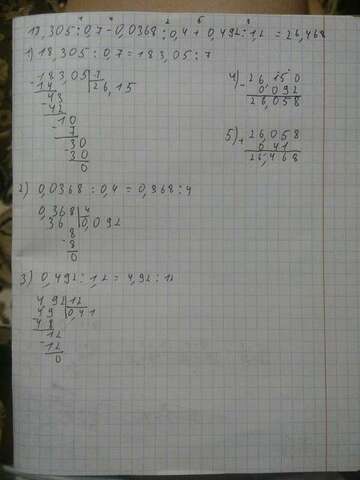 18,305 : 0,7 - 0,0368 : 0,4 + 0,492 : 1,2 = 26,468
1) 18,305 : 0,7 = 183,05 : 7
183,05 | 7
- 14 | 26,15
43
- 42
10
- 7
30
- 30
0
2) 0,0368 : 0,4 = 0,368 : 4
0,368 | 4
36 | 0,092
8
- 8
0
3) 0,492 : 1,2 = 4,92 : 12
4,92 | 12
49 | 0,41
- 48
12
- 12
0
4) - 26,150
0,092
26,058
5) + 26,058
0,41
26,468